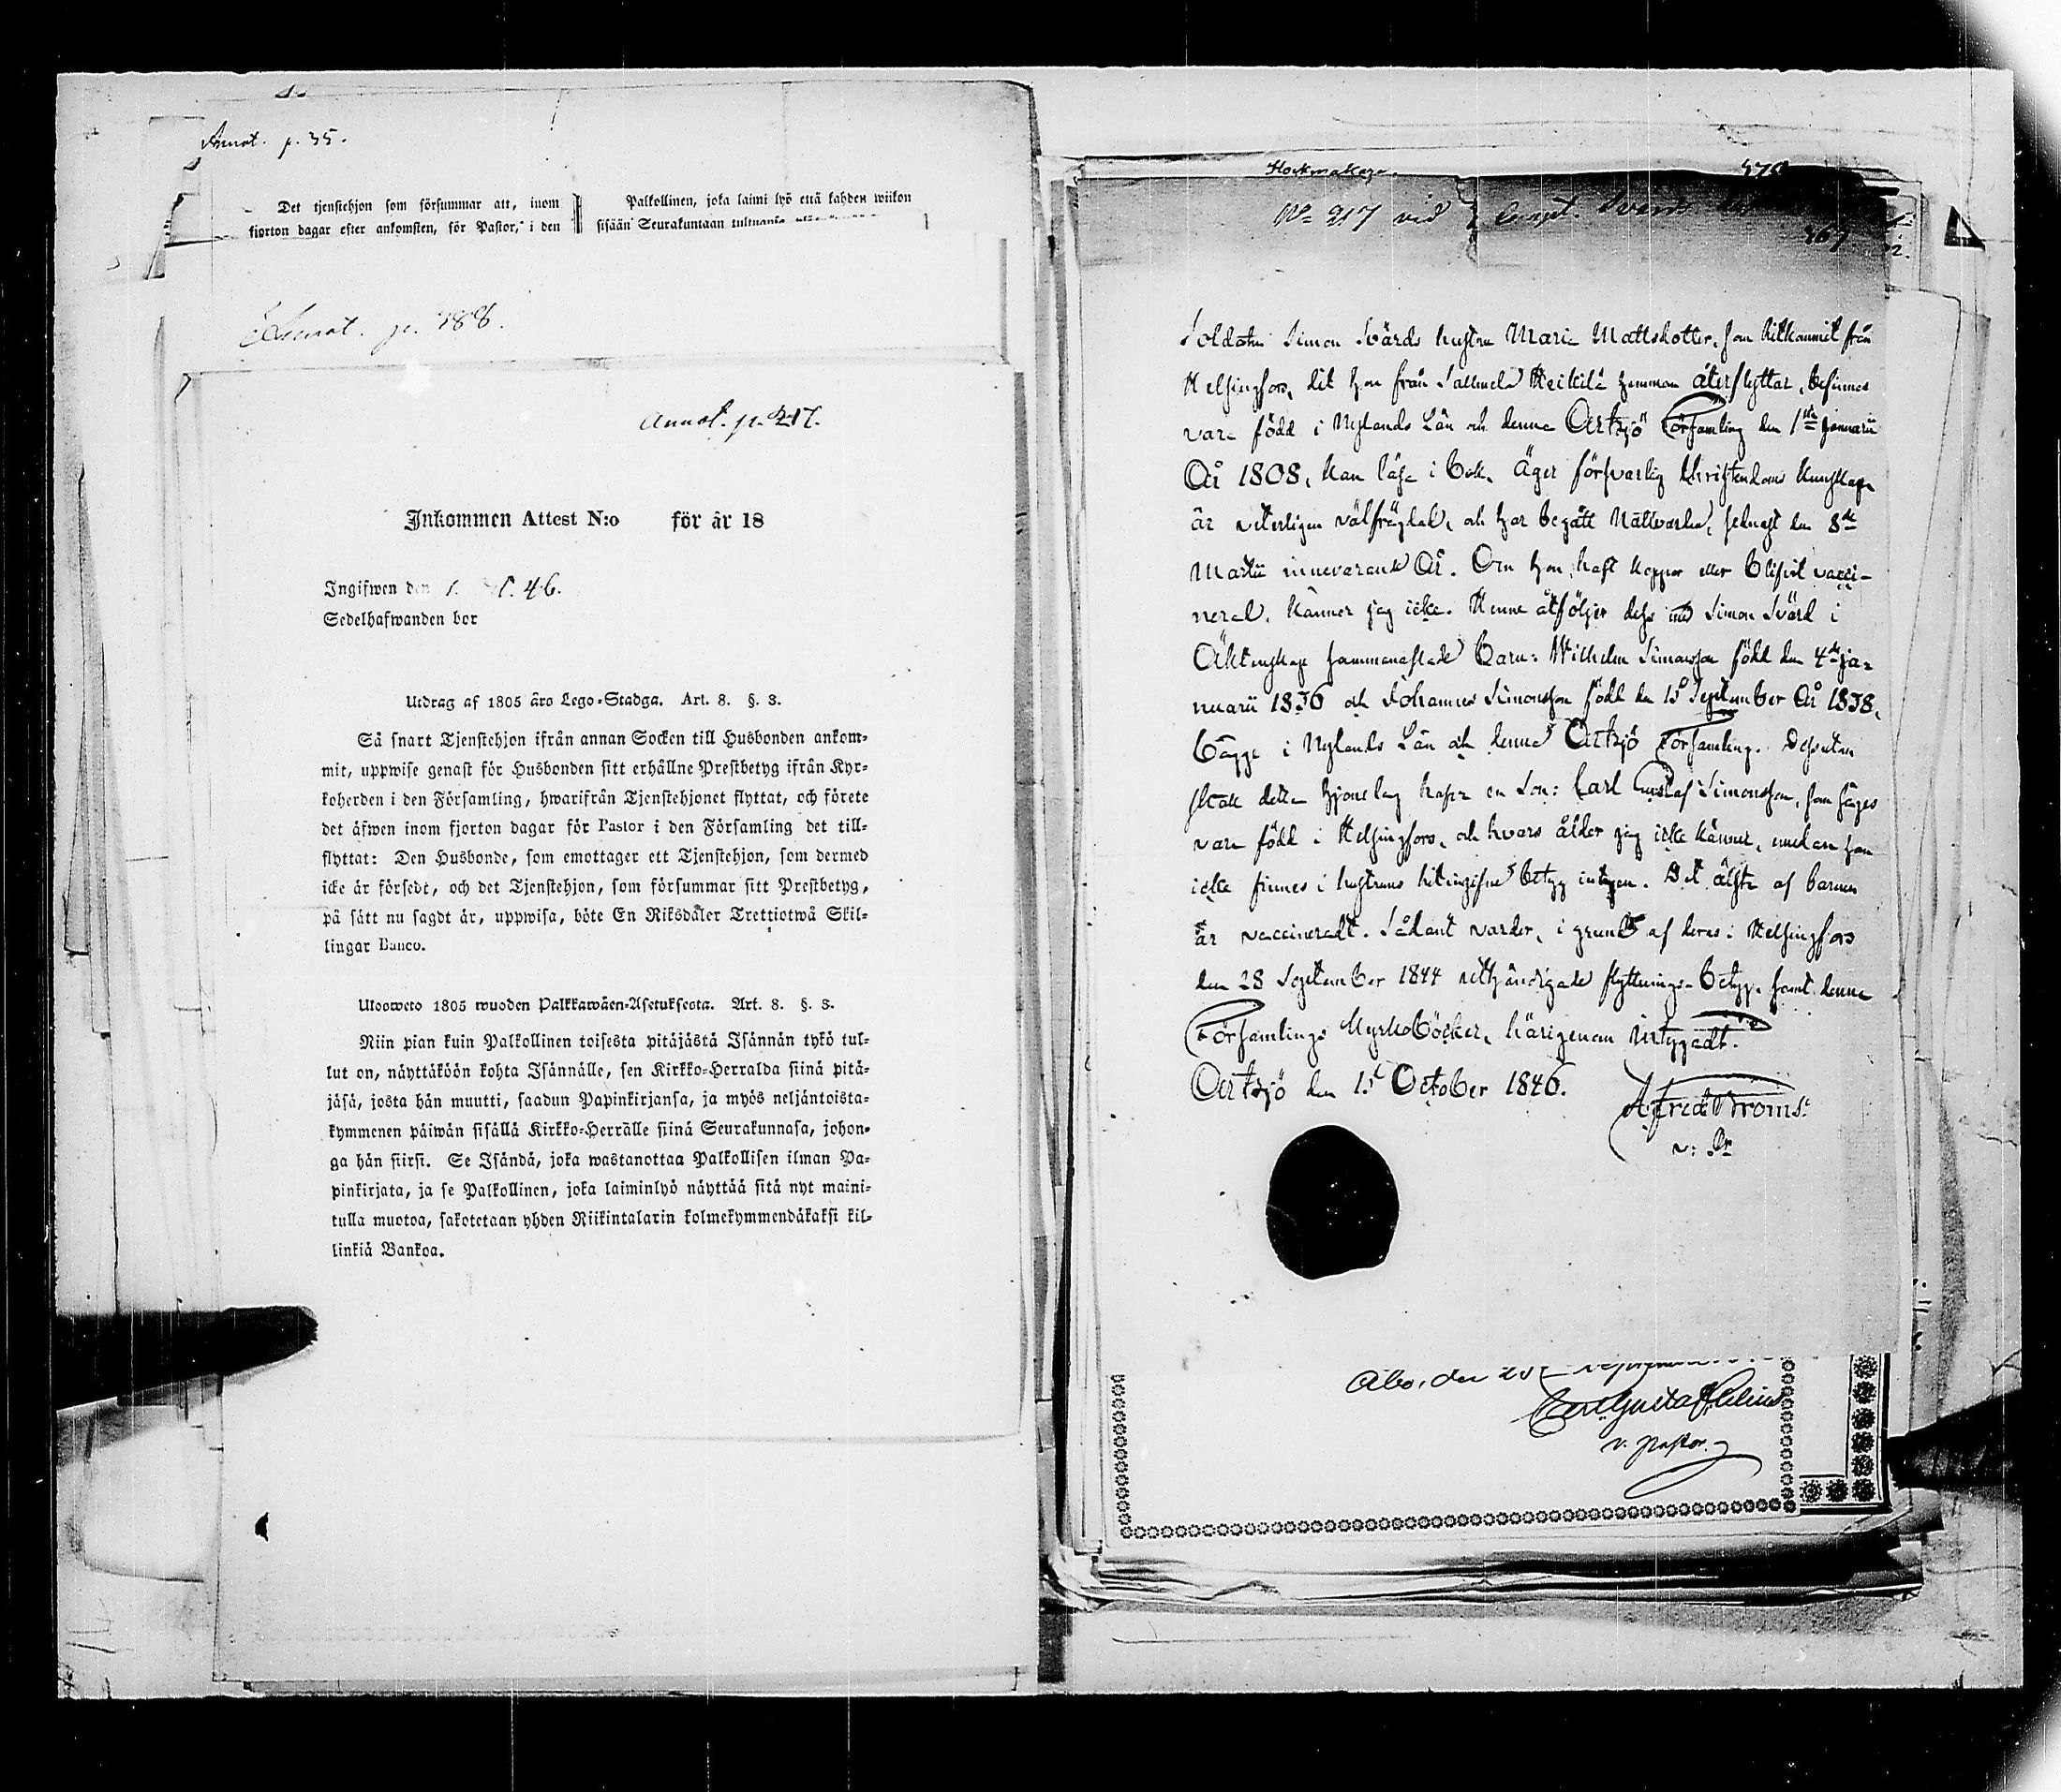 Annot. p. 35.
Det tjenstehjon som försummar att, inom
fjorton dagar efter ankomsten, för Pastor, i den
Palkollinen, joka laimi lyö että kahden wiikon
sisään Seurakuntaan
Annot. p. 388.
Annot. p. 217.
Inkommen Attest N:o för år 18
Ingifwen den 1. 46.
Sedelhafwanden bor
Utdrag af 1805 års Lego-Stadga. Art. 8. §. 3.
Så snart Tjenstehjon ifrån annan Socken till Husbonden ankom-
mit, uppwise genast för Husbonden sitt erhållne Prestbetyg ifrån Kyr-
koherden i den Församling, hwarifrån Tjenstehjonet flyttat, och förete
det äfwen inom fjorton dagar för Pastor i den Församling det till-
flyttat: Den Husbonde, som emottager ett Tjenstehjon, som dermed
icke är försedt, och det Tjenstehjon, som försummar sitt Prestbetyg,
på sätt nu sagdt är, uppwisa, böte En Riksdaler Trettiotwå Skil-
lingar Banco.
Ulosweto 1805 wuoden Palkkawäen-Asetuksesta. Art. 8. §. 3.
Niin pian kuin Palkollinen toisesta pitäjästä Isännän tykö tul-
lut on, näyttäköön kohta Isännälle, sen Kirkko-Herralda siinä pitä-
jäsä, josta hän muutti, saadun Papinkirjansa, ja myös neljäntoista-
kymmenen päiwän sisällä Kirkko-Herralle siinä Seurakunnasa, johon-
ga hän siirsi. Se Isändä, joka wastanottaa Palkollisen ilman Pa-
pinkirjata, ja se Palkollinen, joka laiminlyö näyttää sitä nyt maini-
tulla muotoa, sakotetaan yhden Riikintalarin kolmekymmendäkaksi kil-
linkiä Bankoa.
No 217 vid
Soldaten Simon Svärds hustru Maria Mattsdotter, som hitkommit från
Helsingfors, dit hon från Heikilä hemman återflyttar, befinnes
vara född i Nylands Län och denna Artsjö Församling den 1sta Januarii
År 1808, kan läsa i bok, äger försvarlig Christendoms kunskap
är veterligen välfräjdad, och har begått Nattvarden, sednast den 8de
Martii innevarande År. Om hon haft koppor eller blifvit vacci-
nerad, känner jag icke. Henne åtföljer dess med Simon Svärd i
Äktenskap sammanaflade barn: Wilhelm Simonsson född den 4de Ja-
nuarii 1836 och Johannes Simonsson född den 15 September År 1838,
bägge i Nylands Län och denna Artsjö Församling. Dessutan
skall detta hjonelag hafva en Son: Carl Gustaf Simonsson, som säges
vara född i Helsingfors, och hvars ålder jag icke känner, emedan han
icke finnes i hustruns hitingifne betyg intagen. Det älsta af barnen
är vaccineradt. Sådant varder, i grund af deras i Helsingfors
den 28 September 1844 flyttnings-betyg, samt denna
Församlings Kyrkoböcker, härigenom betygadt.
Artsjö den 1. October 1846.
Alfred Broms.
v: Pr
Åbo, den
v. pastor.